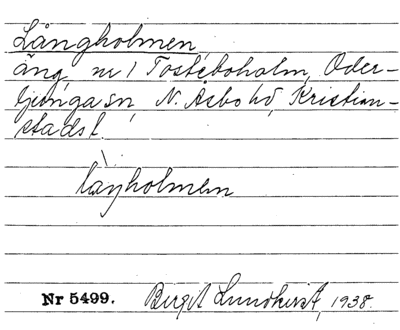 Långholmen,
äng, nr 1 Tosteboholm, Oder-
ljunga sn, N. Åsbo hd, Kristian-
stads l.
làŋholmen
Nr 5499. Birgit Lundkvist, 1938.